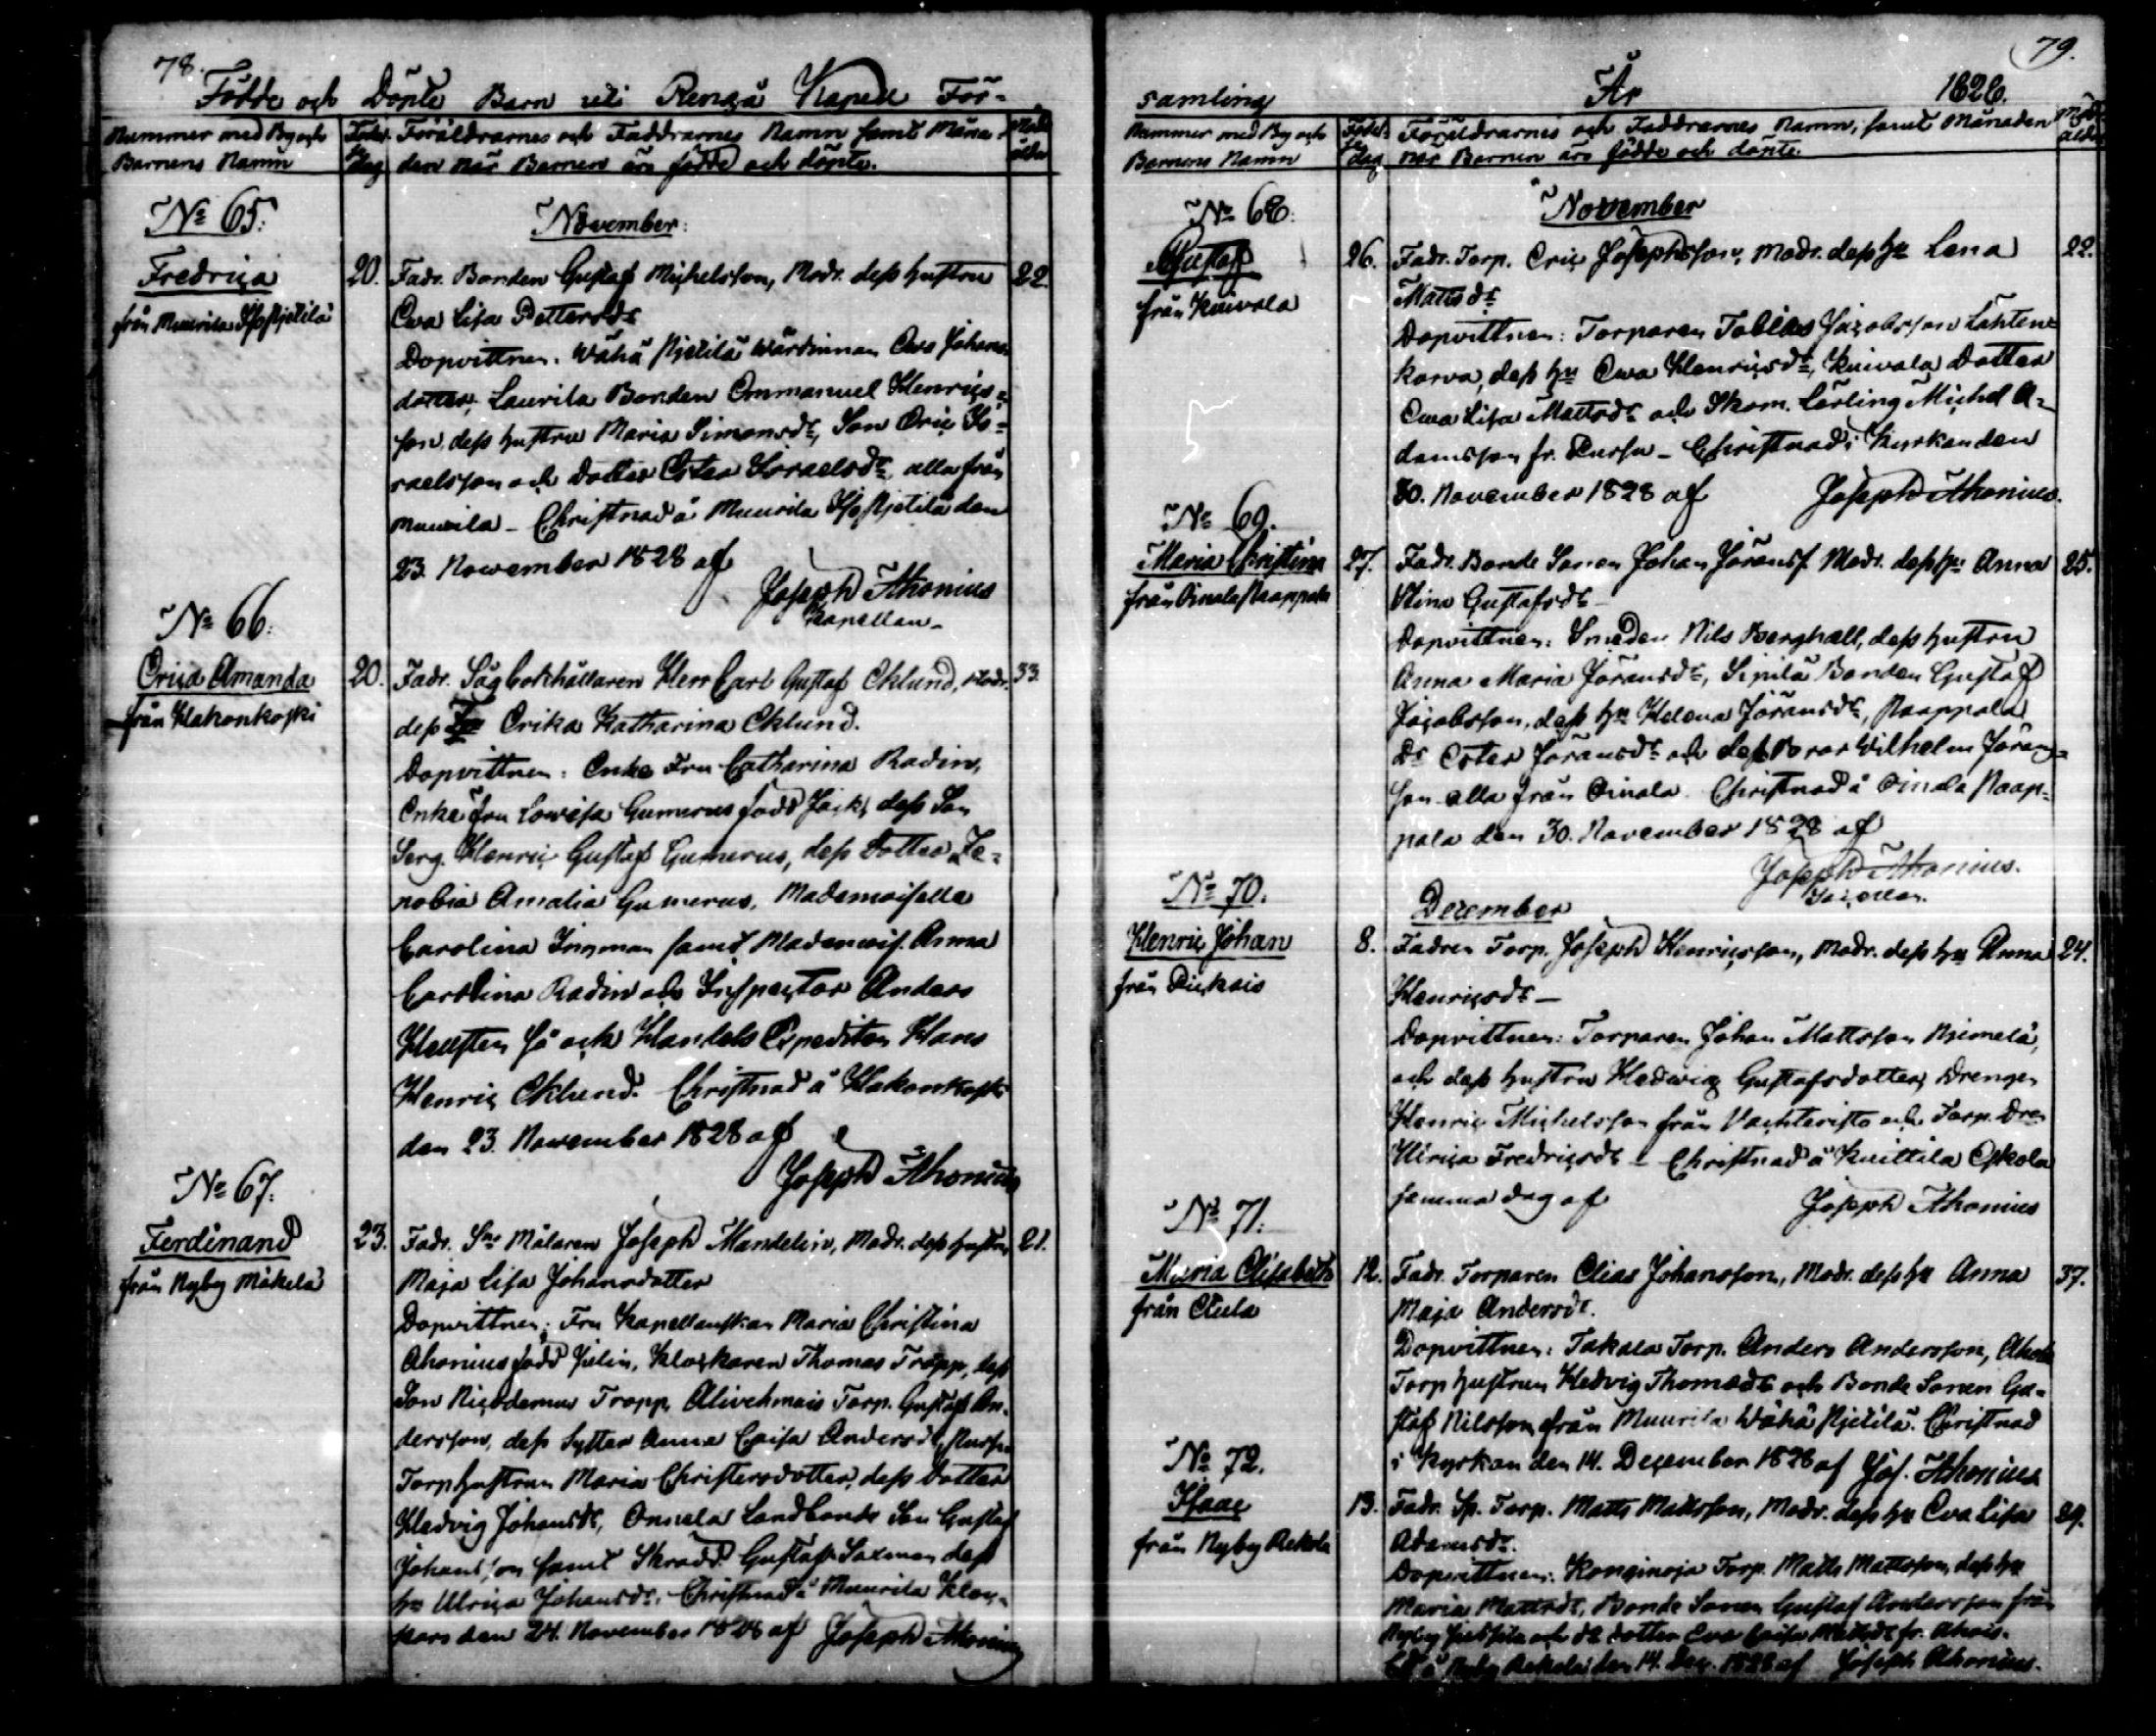 78.
Födde och Döpte Barn uti Rengå Kapell För-
Nummer med By och Födel- Föräldrarnes och Faddrarnes Namn samt Måna- Modr
Barnens Namn se dag den när Barnen äro födde och döpte. ålder
No 65: November:
Fredrica 20. Fadr. Bonden Gustaf Michelsson, Modr. dess hustru 22.
från Muurila Iso Kjetilä Ewa Lisa Pettersdr
Dopvittnen: Wähä Kjetilä Wärdinnan Ewa Johans
dotter, Laurila Bonden Emmanuel Henrics-
son, dess hustru Maria Simonsdr, Son Eric Is-
raelsson och dotter Ester Israelsdr alla från
Muurila – Christnad å Muurila Iso Kjetilä den
23. November 1828 af
Joseph Ahonius
Kapellan.
No 66:
Erica Amanda 20. Fadr. Sågbokhållaren Herr Carl Gustaf Eklund, Modr. 33.
från Hakonkoski dess Fru Erika Katharina Eklund.
Dopvittnen: Enke Fru Catharina Radin,
Enke Fru Lowisa Gumerus född Jack, dess Son
Serg. Henric Gustaf Gumerus, dess dotter Ze-
nobia Amalia Gumerus, Mademoiselle
Carolina Ingman samt Mademois. Anna
Carolina Radin och Inspector Anders
Hellsten så och Handels Expediten Hans
Henric Eklund. Christnad å Hakonkoski
den 23. November 1828 af
Joseph Ahonius
No 67:
Ferdinand 23. Fadr. Sn Målaren Joseph Mandelin, Modr. dess hustru 21.
från Nyby Mäkelä Maja Lisa Johansdotter
Dopvittnen: Fru Kapellanskan Maria Christina
Ahonius född Julin, Klockaren Thomas Tropp, dess
Son Nicodemus Tropp, Alivehmais Torp. Gustaf An-
dersson, dess Syster Anna Caisa Andersdr,
Torphustrun Maria Christersdotter, dess dotter
Hedvig Johansdr, Onnela Landbonde Son Gustaf
Johansson samt Skradd. Gustaf Saxman dess
hu Ulrica Johansdr. Christnad å Muurila Kloc-
kars den 24. November 1828 af Joseph Ahonius
79.
samling År 1828.
Nummer med By och Födel- Föräldrarnes och Faddrarnes Namn, samt Månaden Modr
Barnens Namn se dag när Barnen äro födde och döpte. ålder
No 68: November
Gustaf 26. Fadr. Torp. Eric Josephsson, Modr. dess hu Lena 22.
från Kuivala Mattsdr
Dopvittnen: Torparen Tobias Jacobsson Lähten-
korva, dess hu Ewa Henricsdr, Kuivala Dotter
Ewa Lisa Mattsdr och Skom. Lärling Michel A-
damsson fr. Pursu – Christnad i Kyrkan den
30. November 1828 af Joseph Ahonius.
No 69.
Maria Christina 27. Fadr. Bonde Sonen Johan Jöransf. Modr. dess hu Anna 25.
från Oinala Raappala Stina Gustafsdr
Dopvittnen: Smeden Nils Berghäll, dess hustru
Anna Maria Jöransdr, Sipilä Bonden Gustaf
Jacobsson, dess hu Helena Jöransdr, Raappala
Dr Ester Jöransdr och dess Broder Wilhelm Jörans-
son alla från Oinala. Christnad å Oinala Raap-
pala den 30. November 1828 af
Joseph Ahonius.
Kapellan.
No 70. December
Henric Johan 8. Fadren Torp. Joseph Henricsson, Modr. dess hu Anna 24.
från Henricsdr –
Dopvittnen: Torparen Johan Mattsson Njemelä,
och dess hustru Hedwig Gustafsdotter, Drengen
Henric Michelsson från Vachteristo och Torp. Dr
Ulrica Fredricsdr – Christnad å Knittila Eskola
samma dag af Joseph Ahonius
No 71:
Maria Elisabeth 12. Fadr. Torparen Elias Johansson, Modr. dess hu Anna 37.
från Maja Andersdr.
Dopvittnen: Takala Torp. Anders Andersson, Ahola
Torphustrun Hedvig Thomasdr och Bonde Sonen Gu-
staf Nilsson från Muurila Wähä Kjetilä. Christnad
i Kyrkan den 14. December 1828 af Jos. Ahonius
No 72.
Isaac 13. Fadr. Sp. Torp. Matts Mattsson, Modr. dess hu Eva Lisa 29.
från Nyby Rekola Adamsdr.
Dopvittnen: Torp. Matts Mattsson, dess hu
Maria Mattsdr, Bonde Sonen Gustaf Andersson från
Nyby och dotter Eva Caisa Mattsdr fr. Ahois.
å Nyby Rekola den 14. Dec. 1828 af Joseph Ahonius.